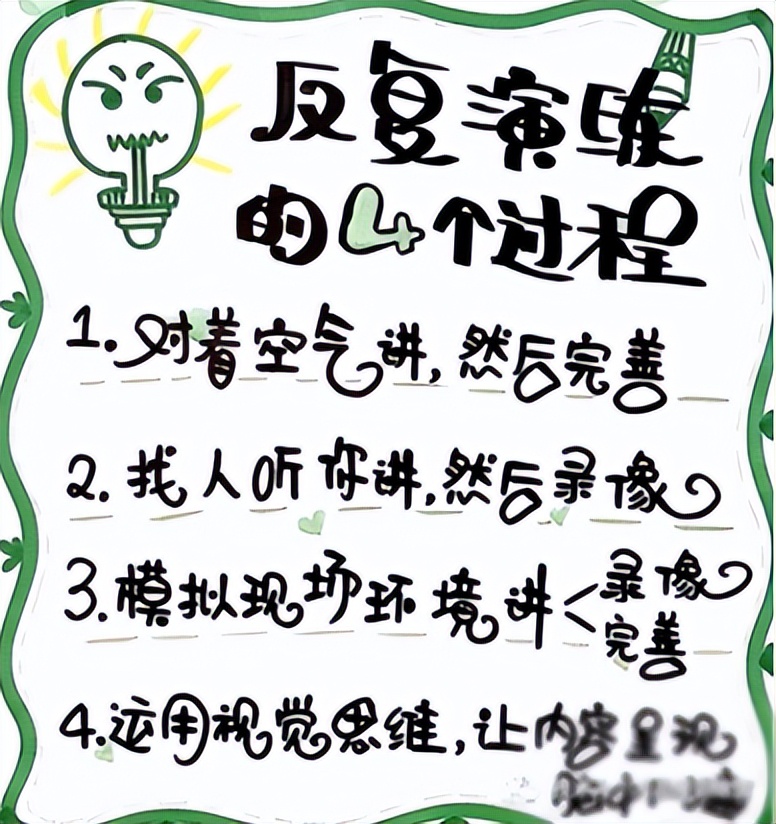 反复演练
的4个过程
1.对着空气讲,然后完善
2.找人听你讲,然后录像
3.模拟现场环境讲<录像
完善
4.运用视觉思维,让内容呈现